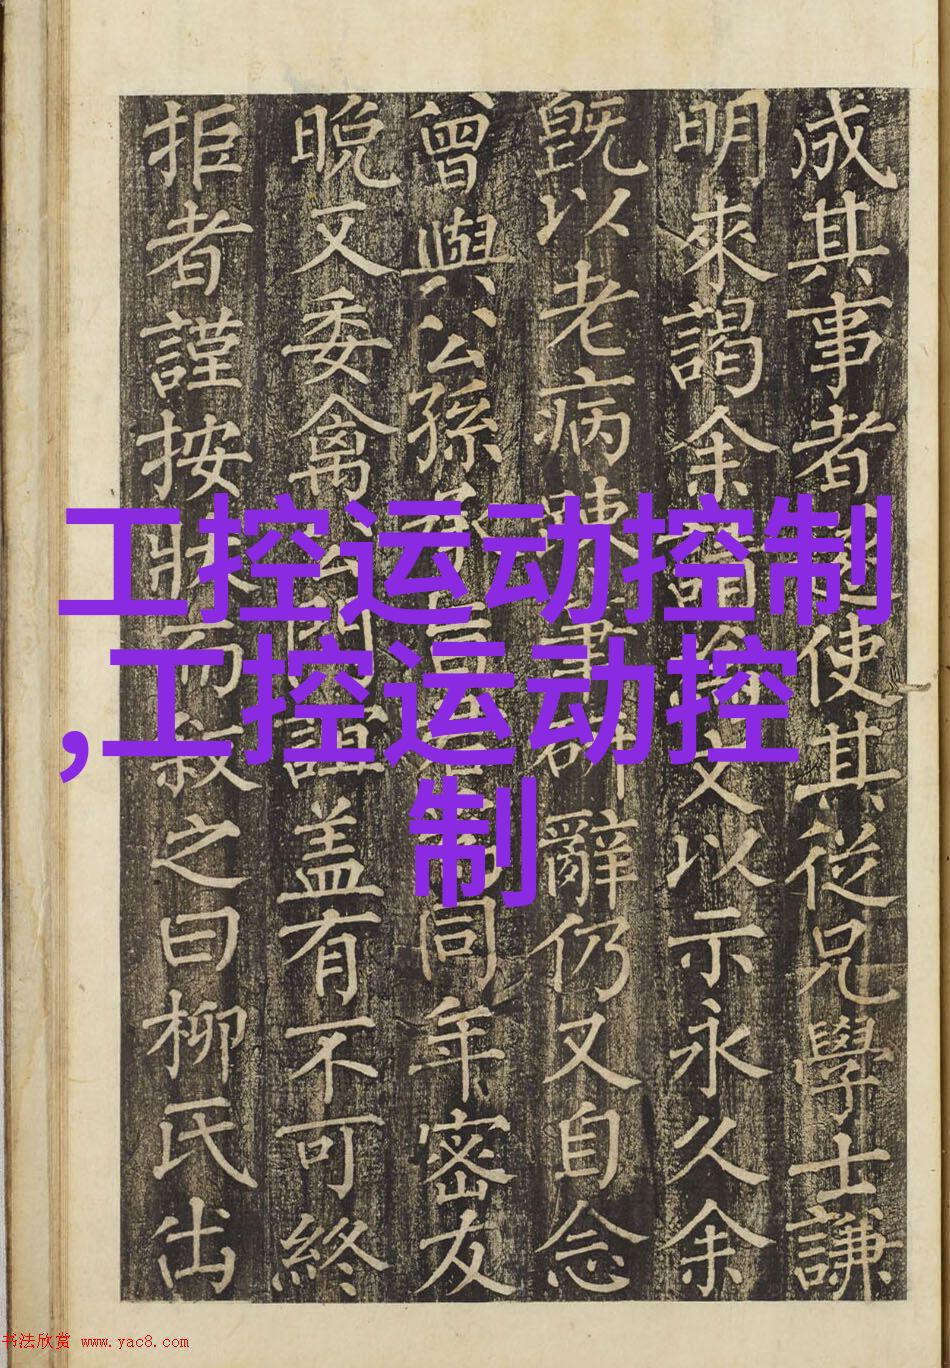 成其事者使其從兄學士謙
明來謁余請為文以示永久余
既以老病研辭仍又自念
曾與公孫同年密友
晚又委禽誼盖有不可終
拒者謹按而叙之曰柳氏出
工控运动控制
,工控运动控
制
书法欣赏 www.yac8.com